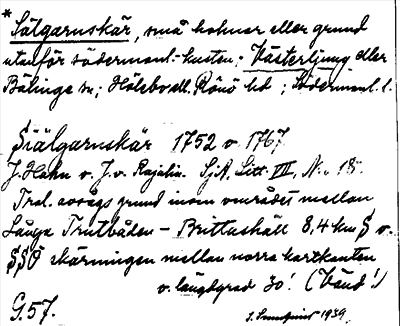 * Sälgarnskär, små holmar eller grund
utanför södermanl.-kusten; Västerljung eller
Bälinge sn; Hölebo ell. Rönö hd; Södermanl. l.
Siälgarnskär 1752 o. 1767.
J. Hahn o. J. v. Rajalin. SjA, Litt. III, N:o 18.
Trol. avses grund inom området mellan
Långa Trutbåden - Brittashäll 8,4 km S o.
SSO skärningen mellan norra kartkanten
o. längdgrad 30'. (Vänd!)
G. 57.
1939